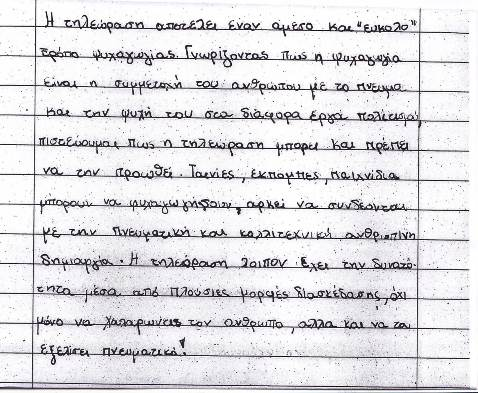 Η τηλεόραση αποτελεί έναν άμεσο και "εύκολο"
τρόπο ψυχαγωγίας. Γνωρίζοντας πως η ψυχαγωγία
είναι η συμμετοχή του ανθρώπου με το πνευμα
και την ψυχή του στα διάφορα έργα πολιτισμού,
πιστεύουμε πως η τηλεόραση μπορεί και πρέπει
να την προωθεί. Ταινίες, εκπομπές, παιχνίδια
μπορουν να ψυχαγωγήσουν, αρκεί να συνδέονται
με την πνευματική και καλλιτεχνική ανθρωπινη
δημιουργία. Η τηλεόραση λοιπον έχει την δυνατό-
τητα μέσα από πλούσιες μορφές διασκέδασης, όχι
μόνο να χαλαρώνει τον ανθρωπο, αλλα και να τον
εξελίσει πνευματικά!